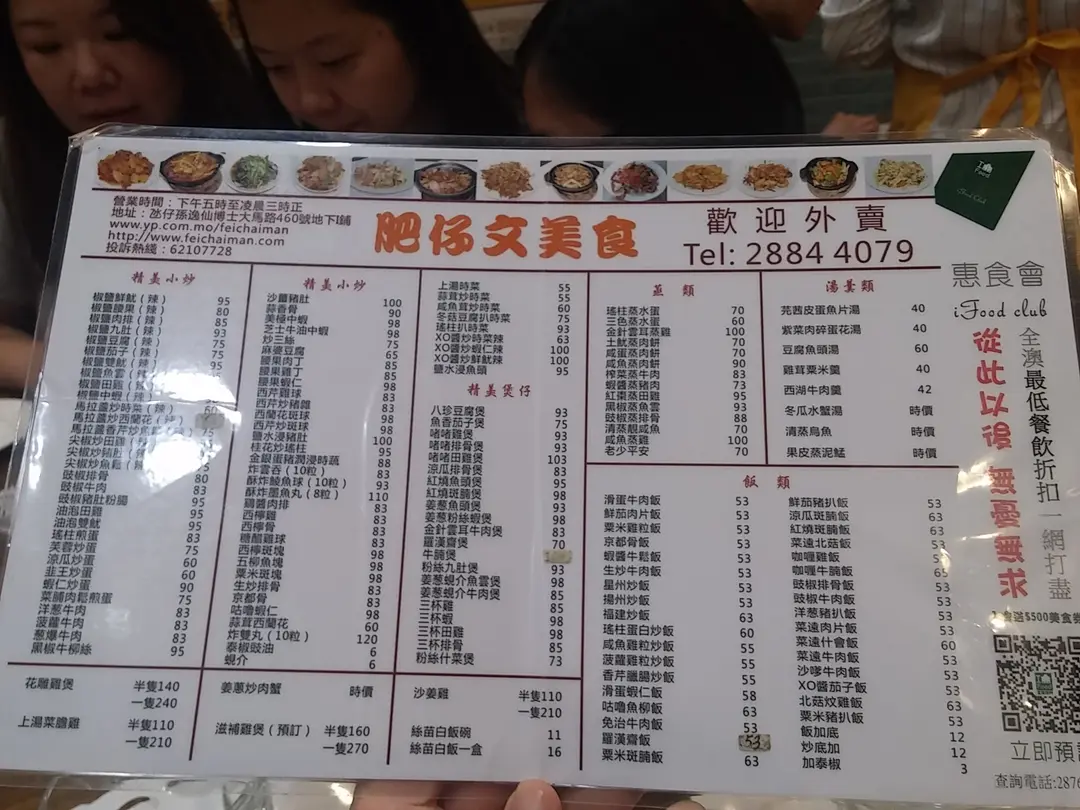 營業時間：下午五時至凌晨三時正
地址：氹仔孫逸仙博士大馬路460號地下I舖
www.yp.com.mo/feichaiman
http://www.feichaiman.com
投訴熱綫：62107728
肥仔文美食
歡迎外賣
Tel: 2884 4079
精美小炒
椒鹽鮮魷（辣） 95
椒鹽腰果（辣） 80
椒鹽肉排（辣） 85
椒鹽九肚（辣） 93
椒鹽豆腐（辣） 75
椒鹽茄子（辣）
椒鹽雙魷（辣）
椒鹽魚雲（辣）
椒鹽田雞（辣）
椒鹽中蝦（辣）
馬拉盞炒時菜（辣） 60
馬拉盞炒西蘭花（辣）
尖椒炒田雞
尖椒炒肉
尖椒炒魚鬆
豉椒排骨 80
豉椒牛肉 83
豉椒豬肚粉腸 95
油泡田雞 95
油泡雙魷 95
瑤柱煎蛋 83
芙蓉炒蛋 75
涼瓜炒蛋 60
韭王炒蛋 60
蝦仁炒蛋 90
菜脯肉鬆煎蛋 75
洋葱牛肉 83
菠蘿牛肉 83
葱爆牛肉 83
黑椒牛柳絲 95
精美小炒
沙薑豬肚 100
蒜香骨 90
美極中蝦 98
芝士牛油中蝦 98
炒三絲 75
麻婆豆腐 65
腰果肉丁 85
腰果蝦仁 98
西芹雞球 83
西芹炒豬雜 83
西蘭花斑球 98
西芹炒斑球 98
鹽水浸豬肚 100
桂花炒瑤柱 95
金銀蛋豬潤浸時蔬 88
炸雲吞（10粒） 83
酥炸鯪魚球（10粒） 93
酥炸墨魚丸（8粒） 110
鷄醬肉排 83
西檸雞 83
西檸骨 83
糖醋雞球 83
西檸斑塊 98
五柳魚塊 98
粟米斑塊 98
生炒排骨 83
京都骨 83
咕嚕蝦仁 98
蒜茸西蘭花 60
炸雙丸（10粒） 120
泰椒豉油 6
蜆介 6
上湯時菜 55
蒜茸炒時菜 55
咸魚茸炒時菜 60
冬菇豆腐扒時菜 75
瑤柱扒時菜 93
XO醬炒時菜辣 63
XO醬炒蝦仁辣 100
XO醬炒鮮魷辣 100
鹽水浸魚頭 95
精美煲仔
八珍豆腐煲 93
魚香茄子煲 75
啫啫雞煲 93
啫啫排骨煲 93
啫啫田雞煲 103
涼瓜排骨煲 83
紅燒魚頭煲 95
紅燒斑腩煲 98
姜葱魚頭煲 93
姜葱粉絲蝦煲 98
金針雲耳牛肉煲 83
羅漢齋煲 70
牛腩煲
粉絲九肚煲 93
姜葱蜆介魚雲煲 98
姜葱蜆介牛肉煲 85
三杯雞 85
三杯蝦 98
三杯田雞 98
三杯排骨 85
粉絲什菜煲 73
蒸類
瑤柱蒸水蛋 70
三色蒸水蛋 60
金針雲耳蒸雞 100
土魷蒸肉餅 70
咸蛋蒸肉餅 70
咸魚蒸肉餅 90
榨菜蒸牛肉 83
蝦醬蒸豬肉 73
紅棗蒸田雞 95
黑椒蒸魚雲 93
豉椒蒸排骨 88
清蒸靚咸魚 70
咸魚蒸雞 100
老少平安 70
湯羹類
芫茜皮蛋魚片湯 40
紫菜肉碎蛋花湯 40
豆腐魚頭湯 60
雞茸粟米羹 40
西湖牛肉羹 42
冬瓜水蟹湯 時價
清蒸烏魚 時價
果皮蒸泥鯭 時價
飯類
滑蛋牛肉飯 53
鮮茄肉片飯 53
粟米雞粒飯 53
京都骨飯 53
蝦醬牛鬆飯 53
生炒牛肉飯 53
星州炒飯 53
揚州炒飯 53
福建炒飯 63
瑤柱蛋白炒飯 60
咸魚雞粒炒飯 55
菠蘿雞粒炒飯 55
香芹臘腸炒飯 55
滑蛋蝦仁飯 58
咕嚕魚柳飯 63
免治牛肉飯 53
羅漢齋飯 53
粟米斑腩飯 63
鮮茄豬扒飯 53
涼瓜斑腩飯 63
紅燒斑腩飯 63
菜遠北菇飯 53
咖喱雞飯 53
咖喱牛腩飯 65
豉椒排骨飯 53
豉椒牛肉飯 53
洋葱豬扒飯 53
菜遠肉片飯 53
菜遠什會飯 60
菜遠牛肉飯 53
沙嗲牛肉飯 53
XO醬茄子飯 53
北菇炆雞飯 53
粟米豬扒飯 53
飯加底 12
炒底加 12
加泰椒 3
花雕雞煲 半隻140
一隻240
上湯菜膽雞 半隻110
一隻210
姜葱炒肉蟹 時價
滋補雞煲（預訂） 半隻160
一隻270
沙姜雞 半隻110
一隻210
絲苗白飯碗 11
絲苗白飯一盒 16
惠食會
iFood club
從此以後 無憂無求
全澳最低餐飲折扣一網打盡
送$500美食券
立即預訂
查詢電話:287